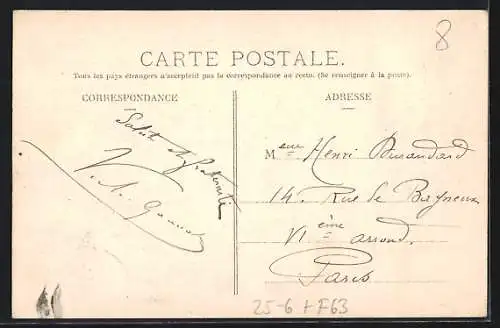 8
CARTE POSTALE.
Tous les pays étrangers n'acceptent pas la correspondance au recto. (Se renseigner à la poste).
CORRESPONDANCE
ADRESSE
Salut et fraternité
V. A.
Meur Henri Durandard
14, Rue de Bagneux
VI ème arrond.
Paris
25-6 + F63